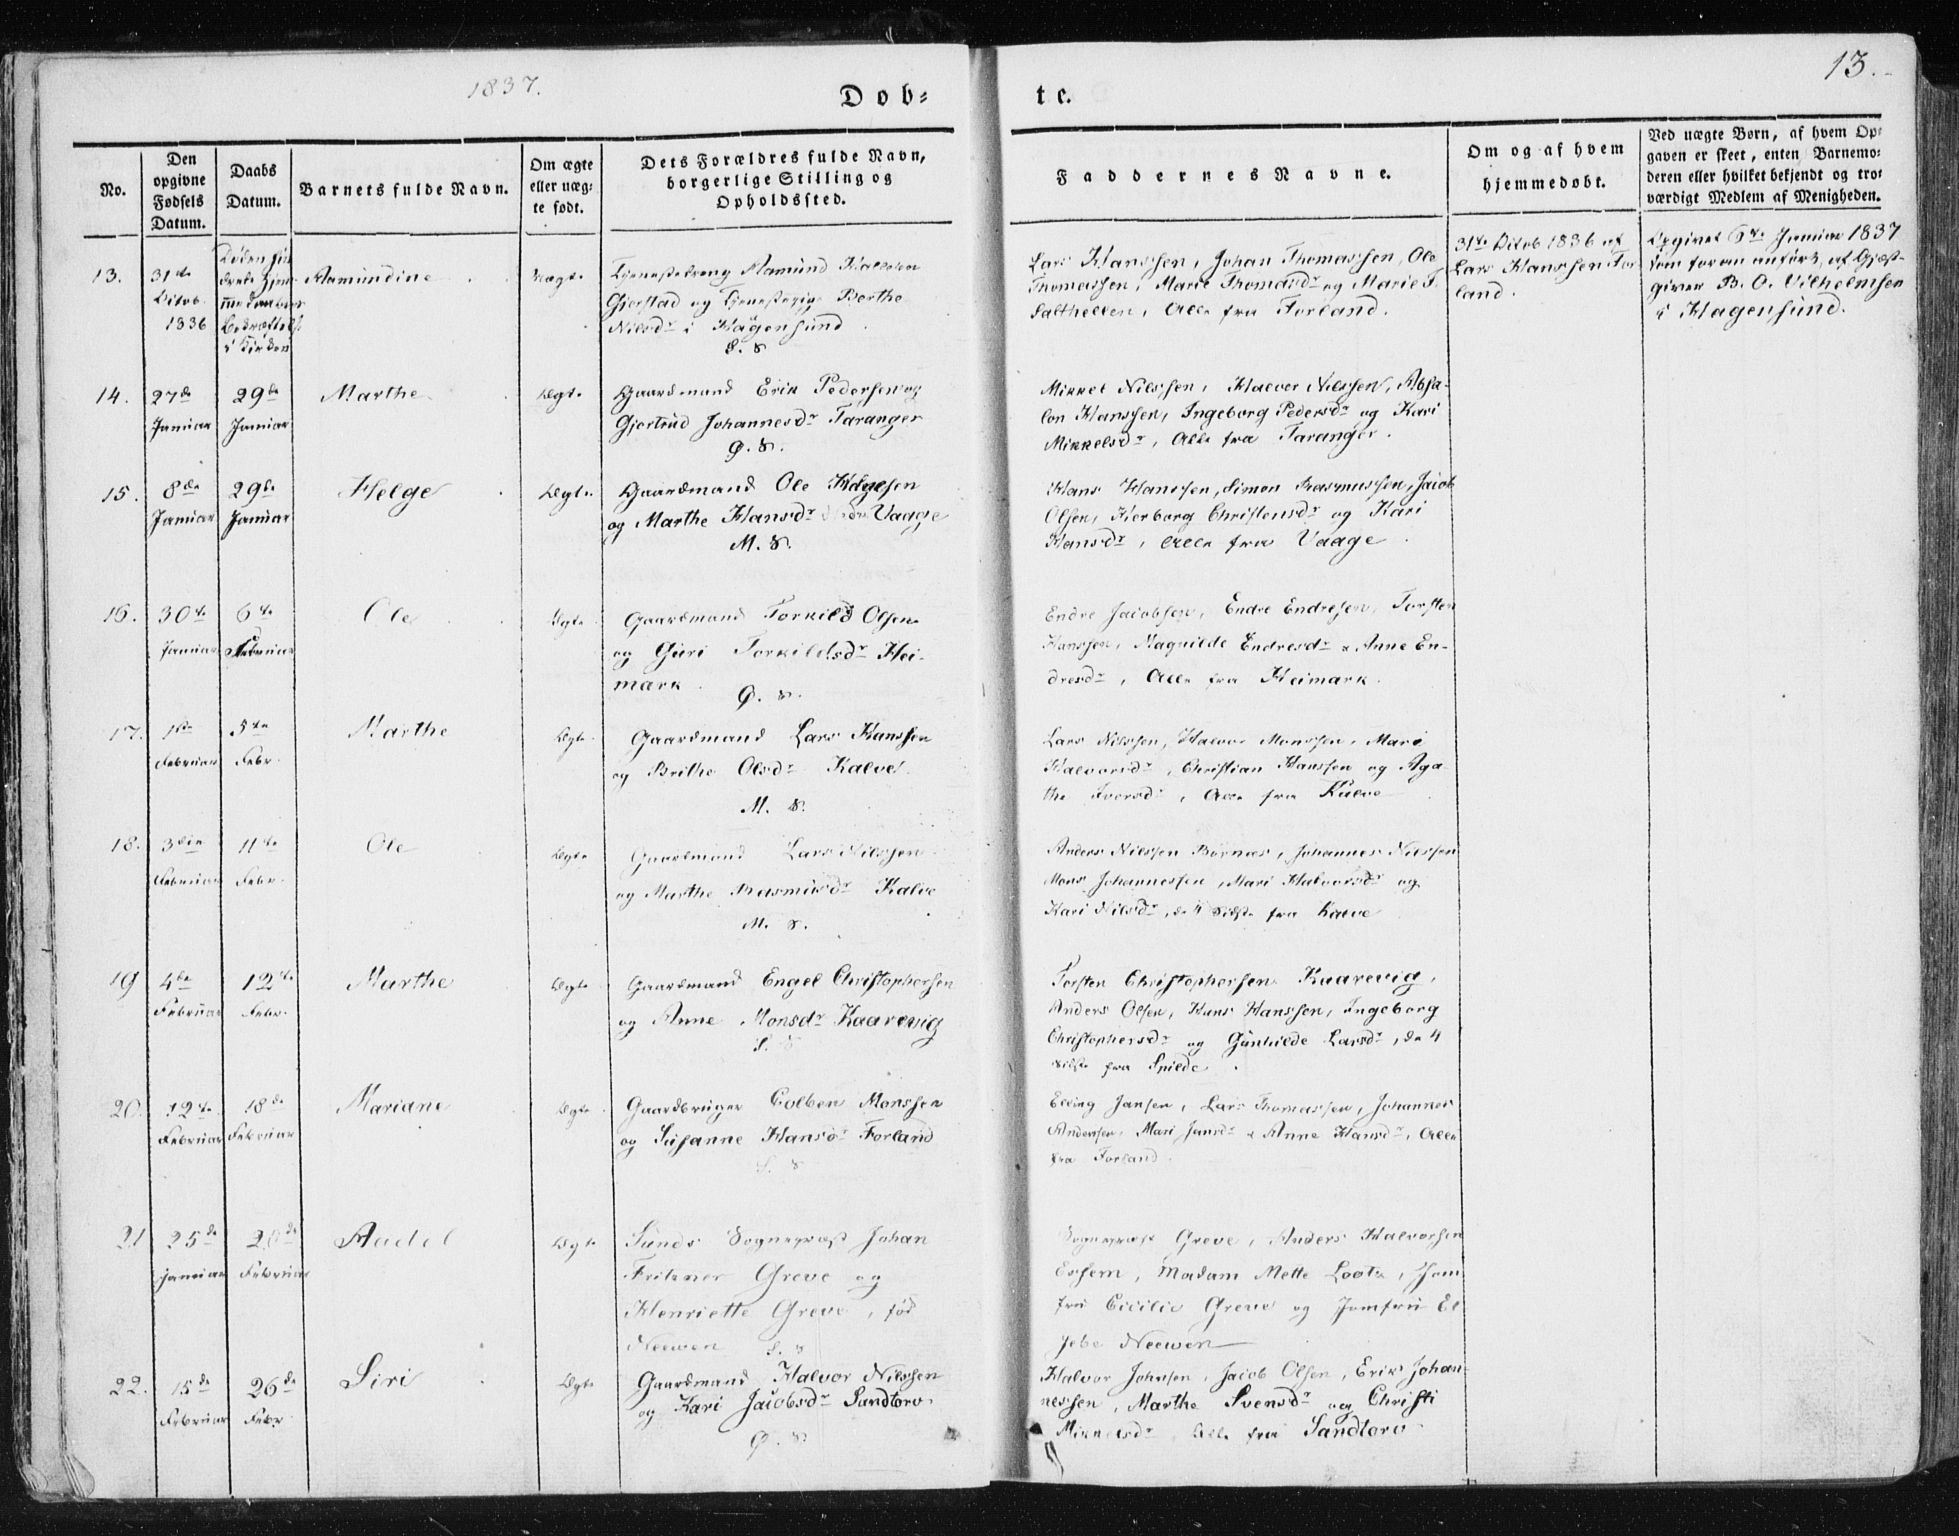 1837.
Døb=
te.
13.
No.
Den opgivne Fødsels Datum.
Daabs Datum.
Barnets fulde Navn.
Om ægte eller uægte født.
Dets Forældres fulde Navn, borgerlige Stilling og Opholdssted.
Faddernes Navne.
Om og af hvem hjemmedøbt.
Ved uægte Børn, af hvem Opgaven er skeet, enten Barnemoderen eller hvilket bekjendt og troværdigt Medlem af Menigheden.
13.
31te
Octob.
1836
Aamundine
Uægte
Tjenestedreng Aamund
Gjerstad og Tjenestepige Berthe
Nilsdr i Hagensund
S. S.
Lars Hanssen, Johan Thomassen, Ole
Thomassen, Marie Thomasdr og Marie T.
Salthellen, Alle fra Forland.
31te Octob 1836 af
Lars Hanssen For
land.
Opgivet 6te Januar 1837
som foran anført, af Gjæst-
giver B. O. Vilhelmsen
i Hagensund.
14.
27de
Januar
29de
Januar
Marthe
Ægte
Gaardmand Erik Pedersen og
Gjertrud Johannesdr Taranger
Ø. S.
Mikkel Nilssen, Halvor Nilssen, Absa-
lon Hanssen, Ingeborg Pedersdr og Kari
Mikkelsdr, Alle fra Taranger.
15.
8de
Januar
29de
Januar
Helge
Ægte
Gaardmand Ole Helgesen
og Marthe Hansdr Vaage
M. S.
Hans Hanssen, Simon Rasmussen, Jacob
Olsen, Herborg Christensdr og Kari
Hansdr, Alle fra Vaage.
16.
30te
Januar
6te
Februar
Ole
Ægte
Gaardmand Torkild Olsen
og Guri Torkildsdr Hei-
mark.
Ø. S.
Endre Jacobsen, Endre Endresen, Torsten
Hanssen, Magnilde Endresdr & Anne En-
dresdr, Alle fra Heimark.
17.
1ste
Februar
5te
Febr.
Marthe
Ægte
Gaardmand Lars Hanssen
og Brithe Olsdr Kalve
M. S.
Lars Nilssen, Halvor Monssen, Mari
Halvorsdr, Christian Hanssen og Aga-
the Iversdr, Alle fra Kalve
18.
3die
Februar
11te
Febr.
Ole
Ægte
Gaardmand Lars Nilssen
og Marthe Rasmusdr Kalve
M. S.
Anders Nilssen Børnæs, Johannes Nilssen
Mons Johannessen, Mari Halvorsdr og
Kari Nilsdr, de 4 sidste fra Kalve
19
4de
Februar
12te
Febr.
Marthe
Ægte
Gaardmand Engel Christophersen
og Anne Monsdr Kaarevig
S. S.
Torsten Christophersen Kaarevig,
Anders Olsen, Hans Hanssen, Ingeborg
Christophersdr og Gunhilde Larsdr, de 4
sidste fra Spilde.
20.
12te
Februar
18de
Februar
Mariane
Ægte
Gaardbruger Colben Monssen
og Susanne Hansdr Forland
S. S.
Elling Jansen, Lars Thomassen, Johannes
Andersen, Mari Jansdr & Anne Hansdr, Alle
fra Forland.
21
25de
Januar
20de
Februar
Aadel
Ægte
Sunds Sognepræst Johan
Fritzner Greve og
Henriette Greve, fød
Neewen
S. S.
Sognepræst Greve, Anders Halvorsen
Eersem, Madam Mette Lootz, Jom
fru Cicilie Greve og Jomfru El
sebe Neewen
22.
15de
Februar
26de
Febr
Siri
Ægte
Gaardmand Halvor Nilssen
og Kari Jacobsdr Sandtorv.
Ø. S.
Halvor Johnsen, Jacob Olsen, Erik Johan-
nessen, Marthe Svensdr og Christi
Mikkelsdr, Alle fra Sandtorv